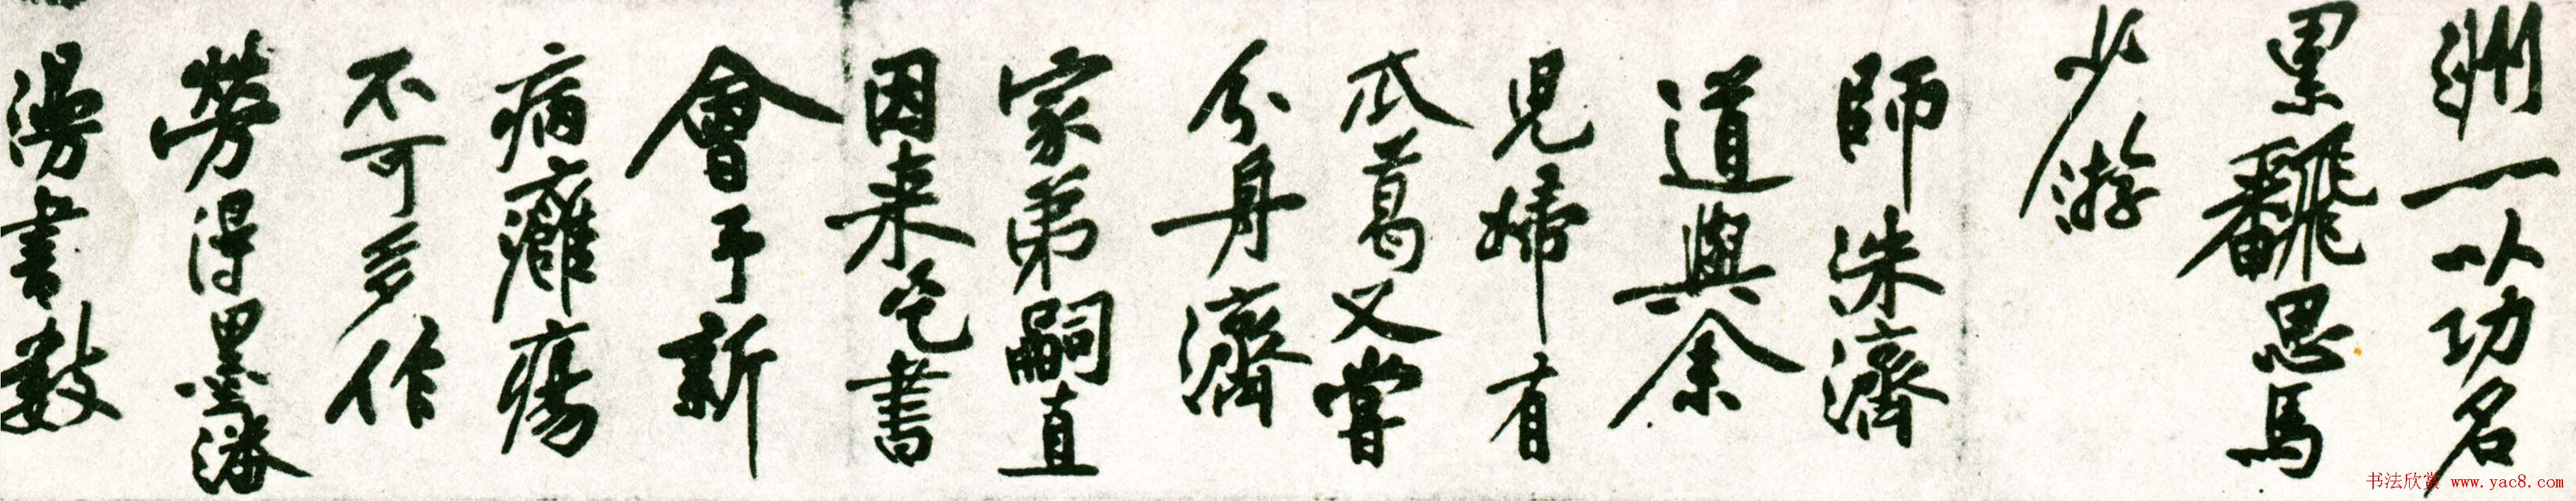 洲一以功名
累飜思馬
少游
師洙濟
道與余
兒婦有
瓜葛又嘗
分舟濟
家弟嗣直
因来乞書
會予新
病癰瘍
不可多作
勞得墨瀋
漫書數
书法欣赏 www.yac8.com